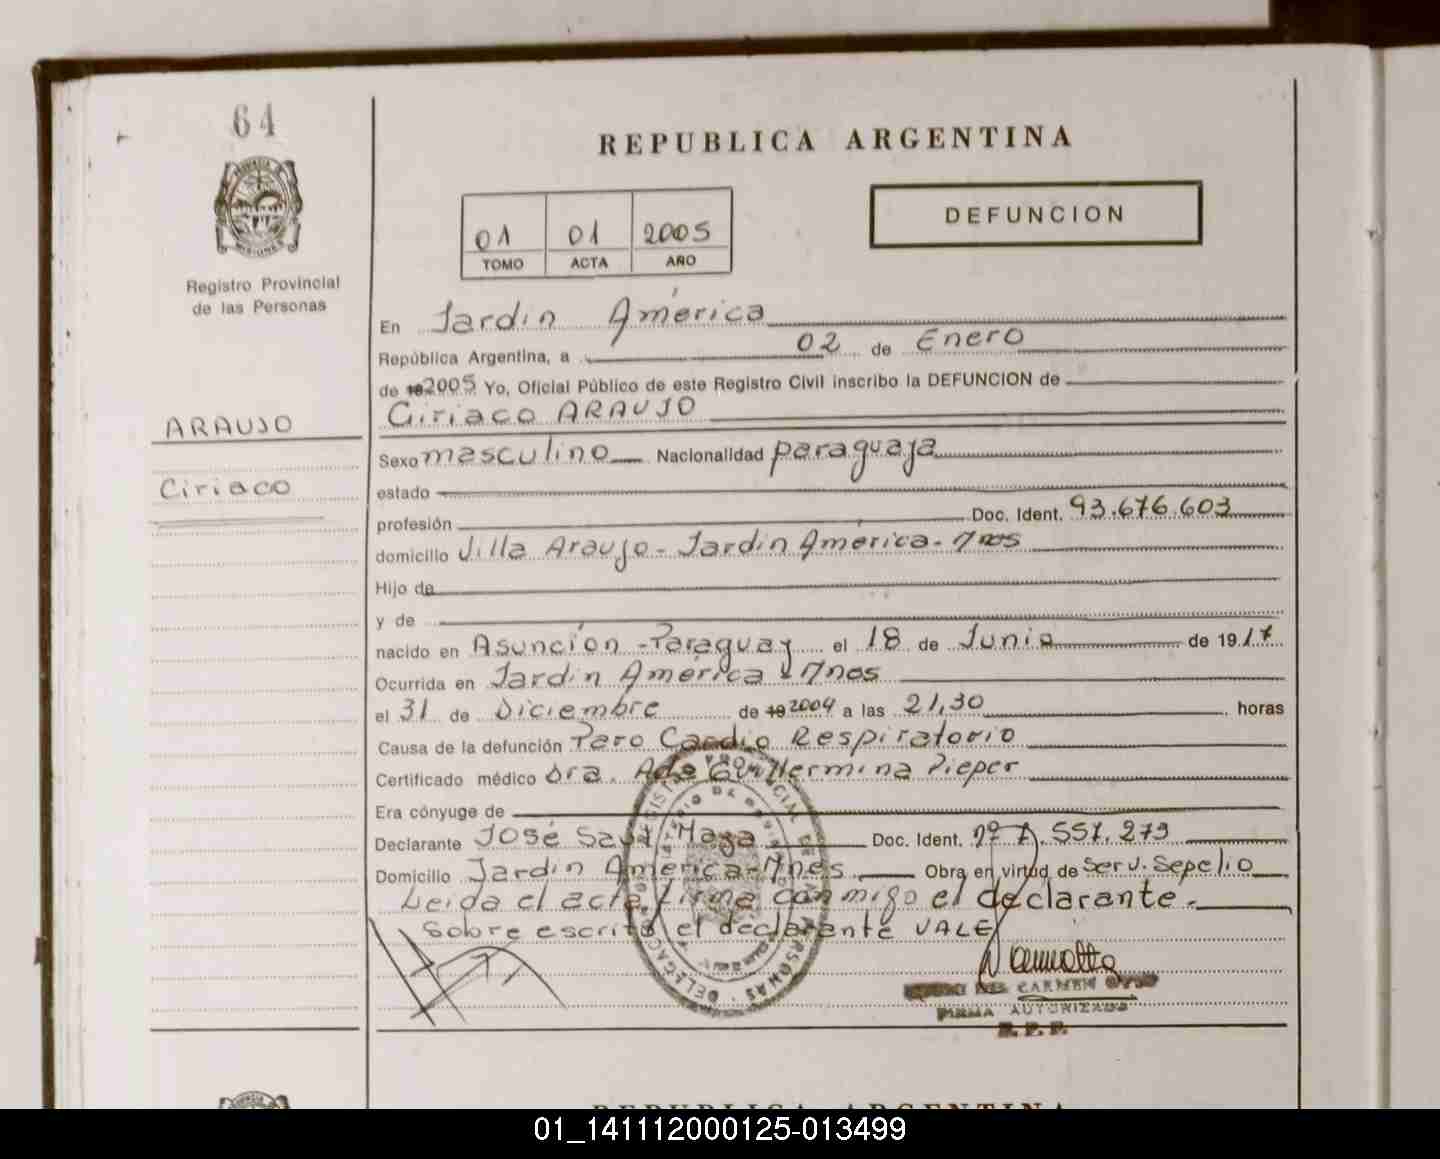 64
REPUBLICA ARGENTINA
DEFUNCION
01 01 2005
TOMO ACTA AÑO
Registro Provincial
de las Personas
En Jardin América
República Argentina, a 02 de Enero
de 19 2005 Yo, Oficial Público de este Registro Civil inscribo la DEFUNCION de
Ciriaco ARAUJO
ARAUJO
Sexo masculino Nacionalidad paraguaja
Ciriaco
estado
profesión Doc. Ident. 93.676.603
domicilio Villa Araujo - Jardin América - Mnes
Hijo de
y de
nacido en Asunción - Paraguay el 18 de Junio de 1917
Ocurrida en Jardin América - Mnes
el 31 de Diciembre de 19 2004 a las 21,30 horas
Causa de la defunción Paro Cardio Respiratorio
Certificado médico Dra. Ada Guillermina Pieper
Era cónyuge de
Declarante José Saul Maza Doc. Ident. nº 7.551.273
Domicilio Jardin America - Mnes. Obra en virtud de Serv. Sepelio
Leida el acta, firma conmigo el declarante.
Sobre escrito el declarante VALE
DEL CARMEN
FIRMA AUTORIZADA
R.P.P.
REPUBLICA ARGENTINA
01_141112000125-013499